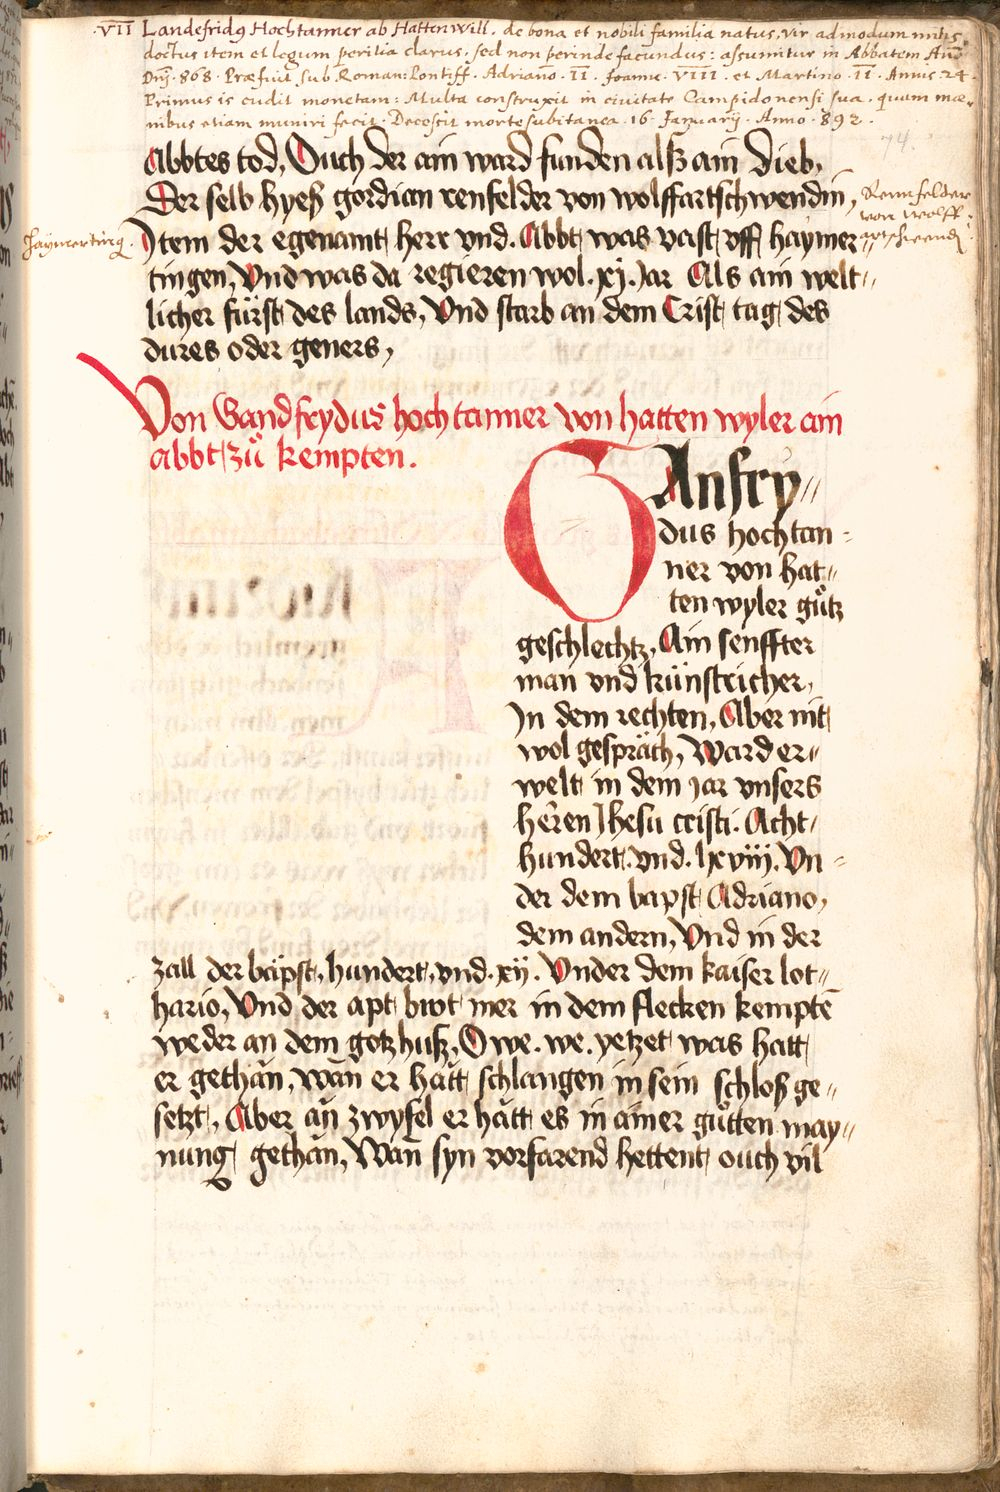 ·VII Landefridq Hochtanner ab Hattenwill. de bona et nobili familia natus, vir admodum mitis,
doctus item et legum peritia clarus, sed non perinde facundus: assumitur in Abbatem Año
Dnj. 868. Præfuit sub Roman: Pontiff. Adriano. II. Joanne. VIII. et Martino. II. Annis 24.
Primus is cudit monetam: Multa construxit in civitate Campidonensi sua, quam mœ-
nibus etiam muniri fecit. Decessit morte subitanea. 16. Januarij. Anno. 892.
74.
Abbtes tod, Ouch der ain ward funden alß ain dieb,
Der selb hyeß gordian renfelder von wolffartschwendin,
Rennfelder
von wolff-
artschwendj.
Haymertingē.
Jtem der egenamt herr vnd. Abbt was vast vff haymer-
tingen, Vnd was da regieren wol. xj. Jar Als ain welt-
licher fürst des lands, Vnd starb an dem Crist tag des
dures oder geners,
Von Gandfrydus hochtanner von hatten wyler ain
abbt zů kempten.
GAnfry-
dus hochtan-
ner von hat-
ten wyler gůtz
geschlechtz, Ain senffter
man vnd künstricher,
Jn dem rechten, Aber nit
wol gespräch, Ward er-
welt in dem jar vnsers
heren Jhesu cristi. Acht
hundert. vnd. lxviij. Vn-
der dem bapst Adriano,
dem andern, Vnd in der
zall der bäpst, hundert, vnd. xij. Vnder dem kaiser lot-
hario, Vnd der apt bwt mer in dem flecken kemptē
weder an dem gotzhuß, O we. we. yetzet was hatt
er gethan, wān er hätt schlangen in sein schloß ge-
setzt, Aber añ zwyfel er hätt es in ainer gůtten may-
nung gethan, Wañ syn vorfarend hettent ouch vil